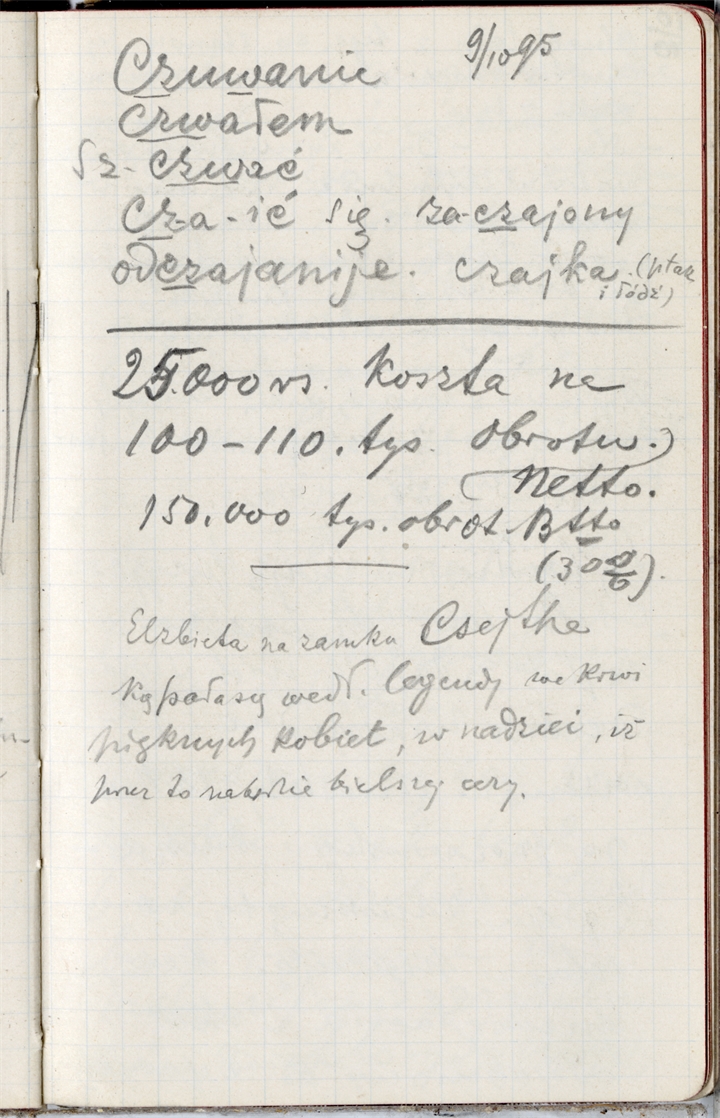 9/10 95
Czuwanie
czwałem
Sz-czwać
Cza-ić się. za-czajony
odczajanije. czajka. (ptak
i łódź)
25.000 rs. Koszta na
100-110. tys. obrotu.)
Netto.
150.000 tys. obrot Btto
(30%).
Elzbieta na zamku Csejthe
kąpała się wedł. legendy we krwi
pięknych kobiet, w nadziei, iż
przez to nabędzie bielszej cery.